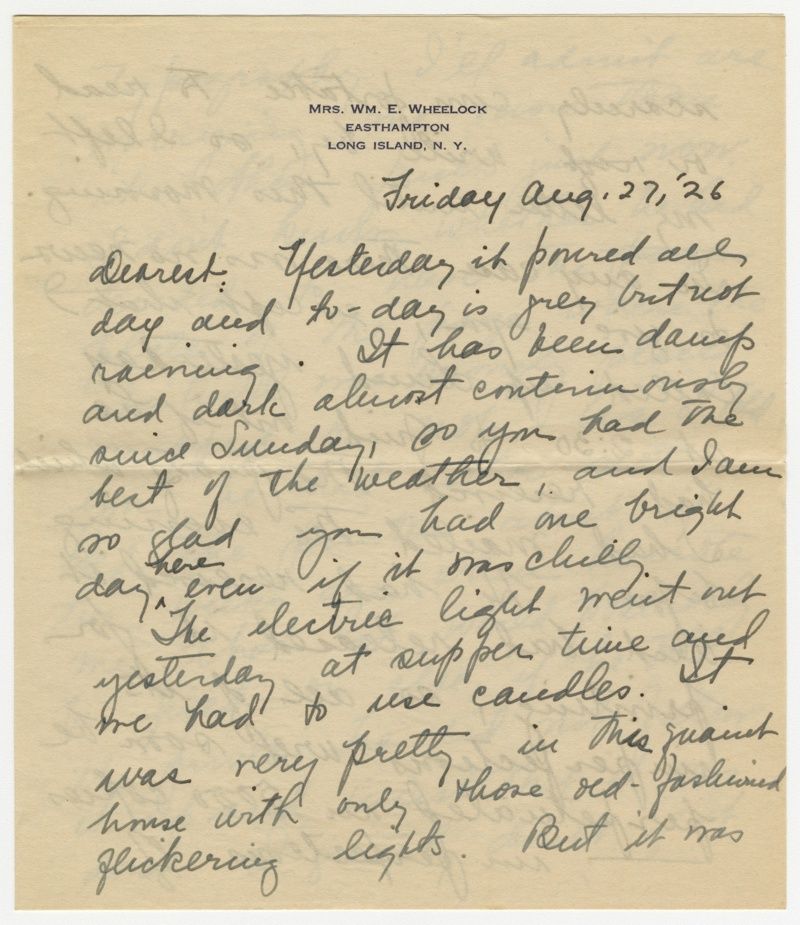 MRS. WM. E. WHEELOCK
EASTHAMPTON
LONG ISLAND, N. Y.
Friday Aug. 27, '26
Dearest: Yesterday it poured all
day and to-day is grey but not
raining. It has been damp
and dark almost continuously
since Sunday, so you had the
best of the weather, and I am
so glad you had one bright
day ^here even if it was chilly
The electric light went out
yesterday at supper time and
we had to use candles. It
was very pretty in this quaint
house with only those old-fashioned
flickering lights. But it was